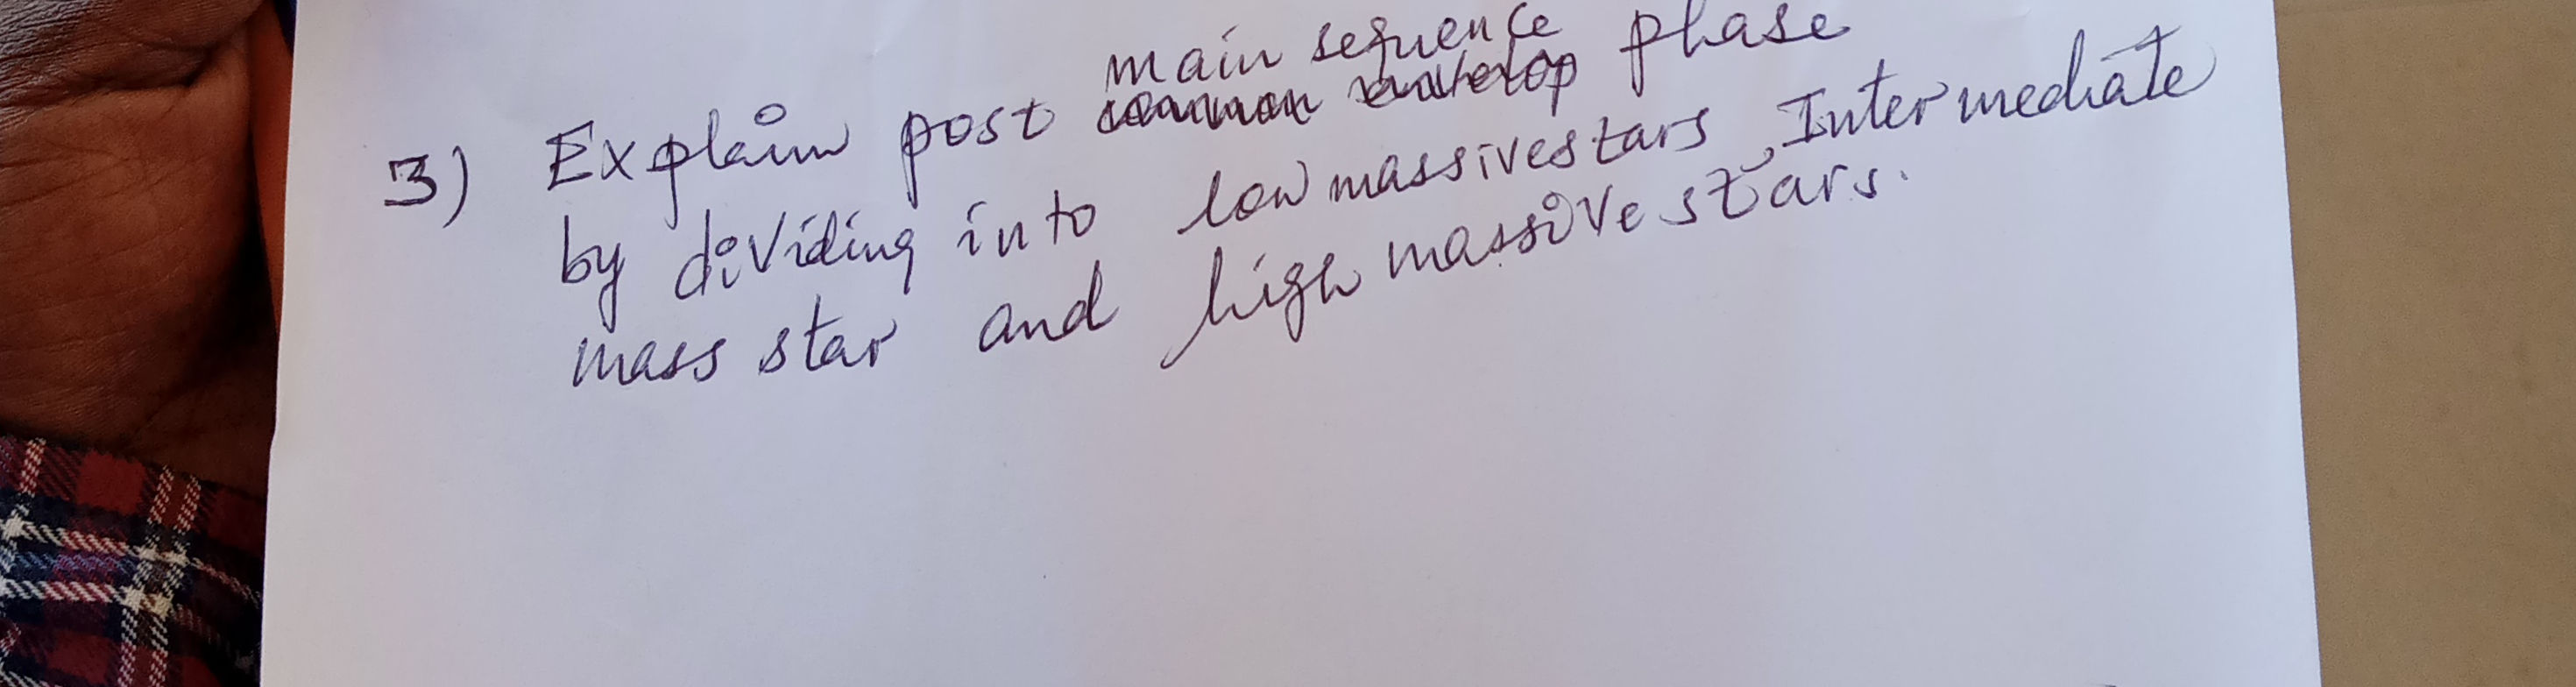 main sequence
3) Explain post common envelop phase
by dividing into low massive stars, Intermediate
mass star and high massive stars.